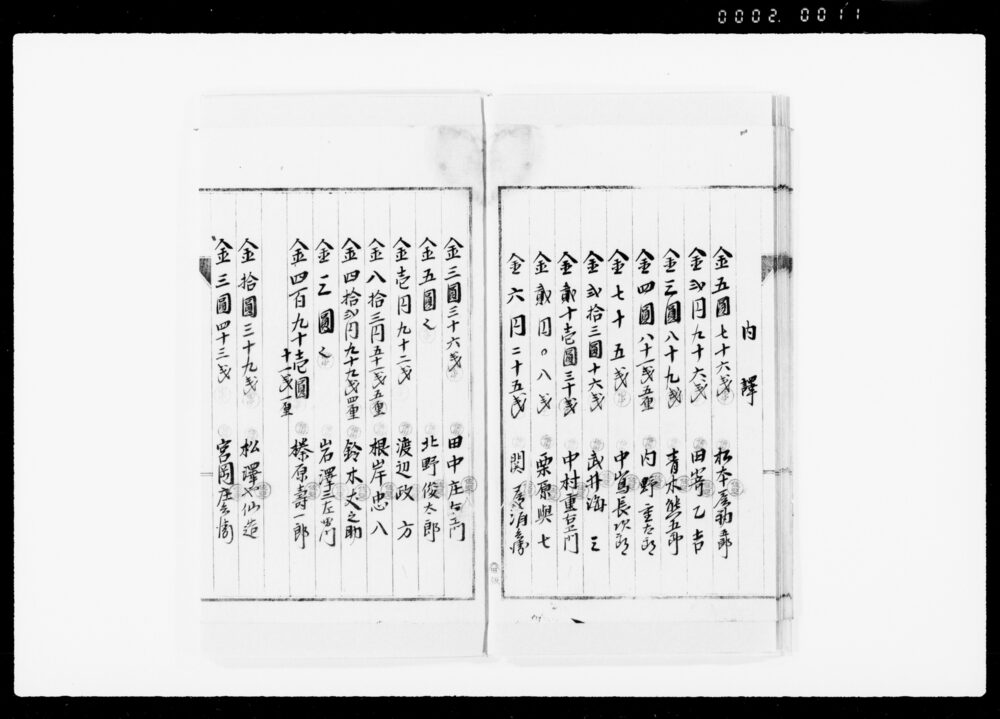 0002. 0011
内譯
金五圓七十六戋
金弐円九十六戋 田嵜乙吉
金三圓八十九戋 青木熊五郎
金四圓八十一戋五重 内野重太郎
金七十五戋 中嶌長次郎
金弐拾三圓十六戋 武井海三
金貳十壱圓三十戋 中村重右衛門
金貳円〇八戋 栗原與七
金六円二十五戋 関
金三圓三十六戋 田中庄右衛門
金五圓之 北野俊太郎
金壱円九十二戋 渡辺政方
金八拾三円五十一戋五重 根岸忠八
金四拾弐円九十九戋四重 鈴木丈之助
金三圓之 岩澤三左衛門
金四百九十壱圓十一戋一重 榛原壽一郎
金拾圓三十九戋 松澤仙造
金三圓四十三戋 宮岡庄